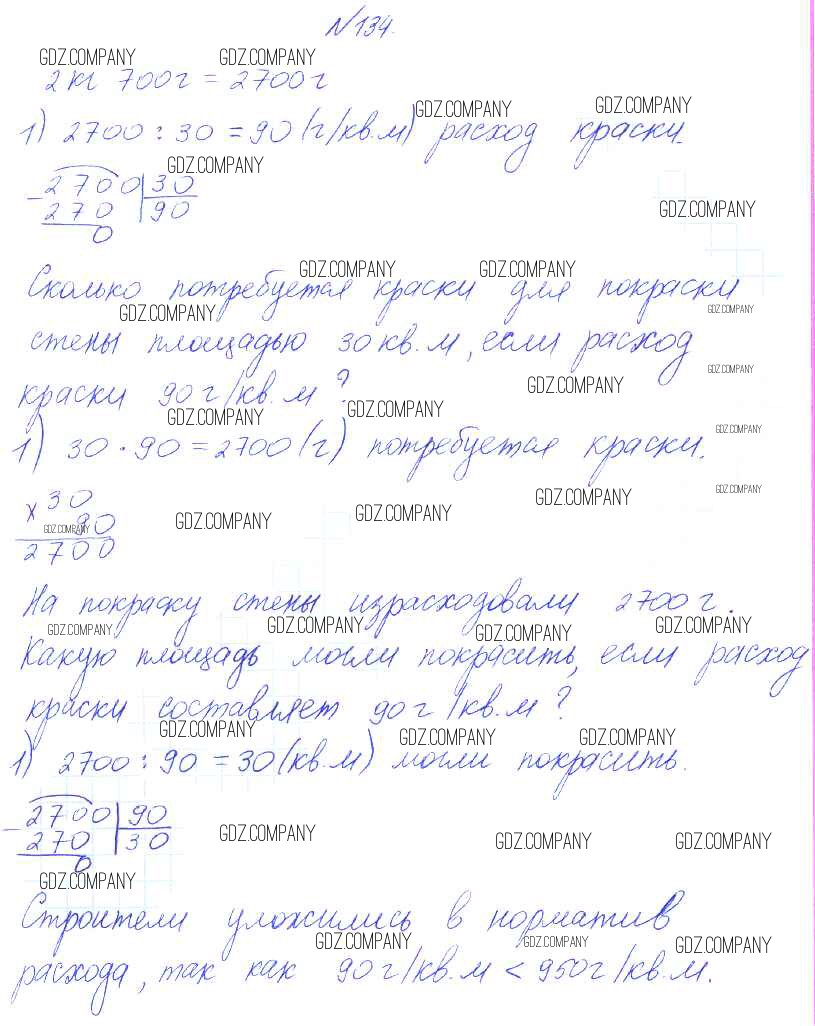 №134.
GDZ.COMPANY GDZ.COMPANY
2 кг 700 г = 2700 г
GDZ.COMPANY GDZ.COMPANY
1) 2700 : 30 = 90 (г/кв.м) расход краски.
GDZ.COMPANY
- 2700 | 30
270 | 90
0
GDZ.COMPANY
GDZ.COMPANY GDZ.COMPANY
Сколько потребуется краски для покраски
GDZ.COMPANY GDZ.COMPANY
стены площадью 30 кв.м, если расход
GDZ.COMPANY
краски 90 г/кв.м?
GDZ.COMPANY
GDZ.COMPANY GDZ.COMPANY GDZ.COMPANY
1) 30 · 90 = 2700 (г) потребуется краски.
GDZ.COMPANY GDZ.COMPANY
х 30
90
GDZ.COMPANY GDZ.COMPANY GDZ.COMPANY
2700
На покраску стены израсходовали 2700 г.
GDZ.COMPANY GDZ.COMPANY GDZ.COMPANY GDZ.COMPANY
Какую площадь могли покрасить, если расход
краски составляет 90 г/кв.м?
GDZ.COMPANY GDZ.COMPANY GDZ.COMPANY
1) 2700 : 90 = 30 (кв.м) могли покрасить.
- 2700 | 90
270 | 30
0
GDZ.COMPANY GDZ.COMPANY GDZ.COMPANY
GDZ.COMPANY
Строители уложились в норматив
GDZ.COMPANY GDZ.COMPANY GDZ.COMPANY
расхода, так как 90 г/кв.м < 950 г/кв.м.